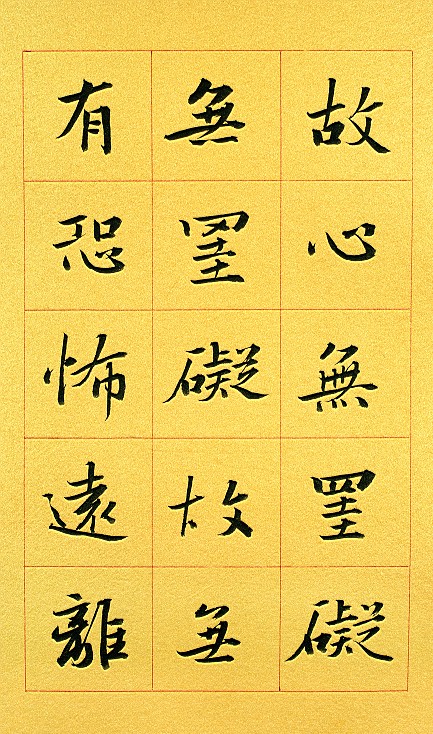 故心無罣礙
無罣礙故無
有恐怖遠離